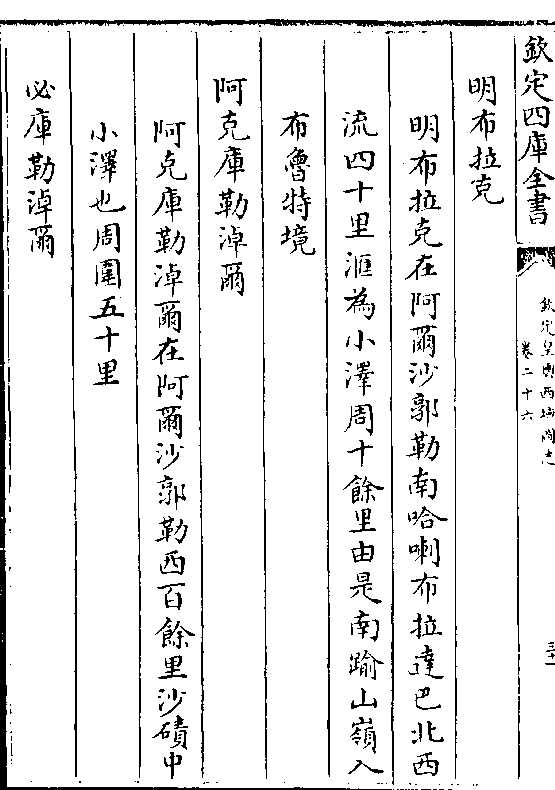 欽定四庫全書
欽定皇輿西域圖志
卷二十六
明布拉克
明布拉克在阿爾沙郭勒南哈喇布拉達巴北西
流四十里滙為小澤周十餘里由是南踰山嶺入
布魯特境
阿克庫勒淖爾
阿克庫勒淖爾在阿爾沙郭勒西百餘里沙磧中
小澤也周圍五十里
必庫勒淖爾